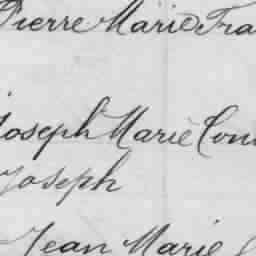 Pierre Marie Fra
Joseph Marie Con
Joseph
Jean Marie